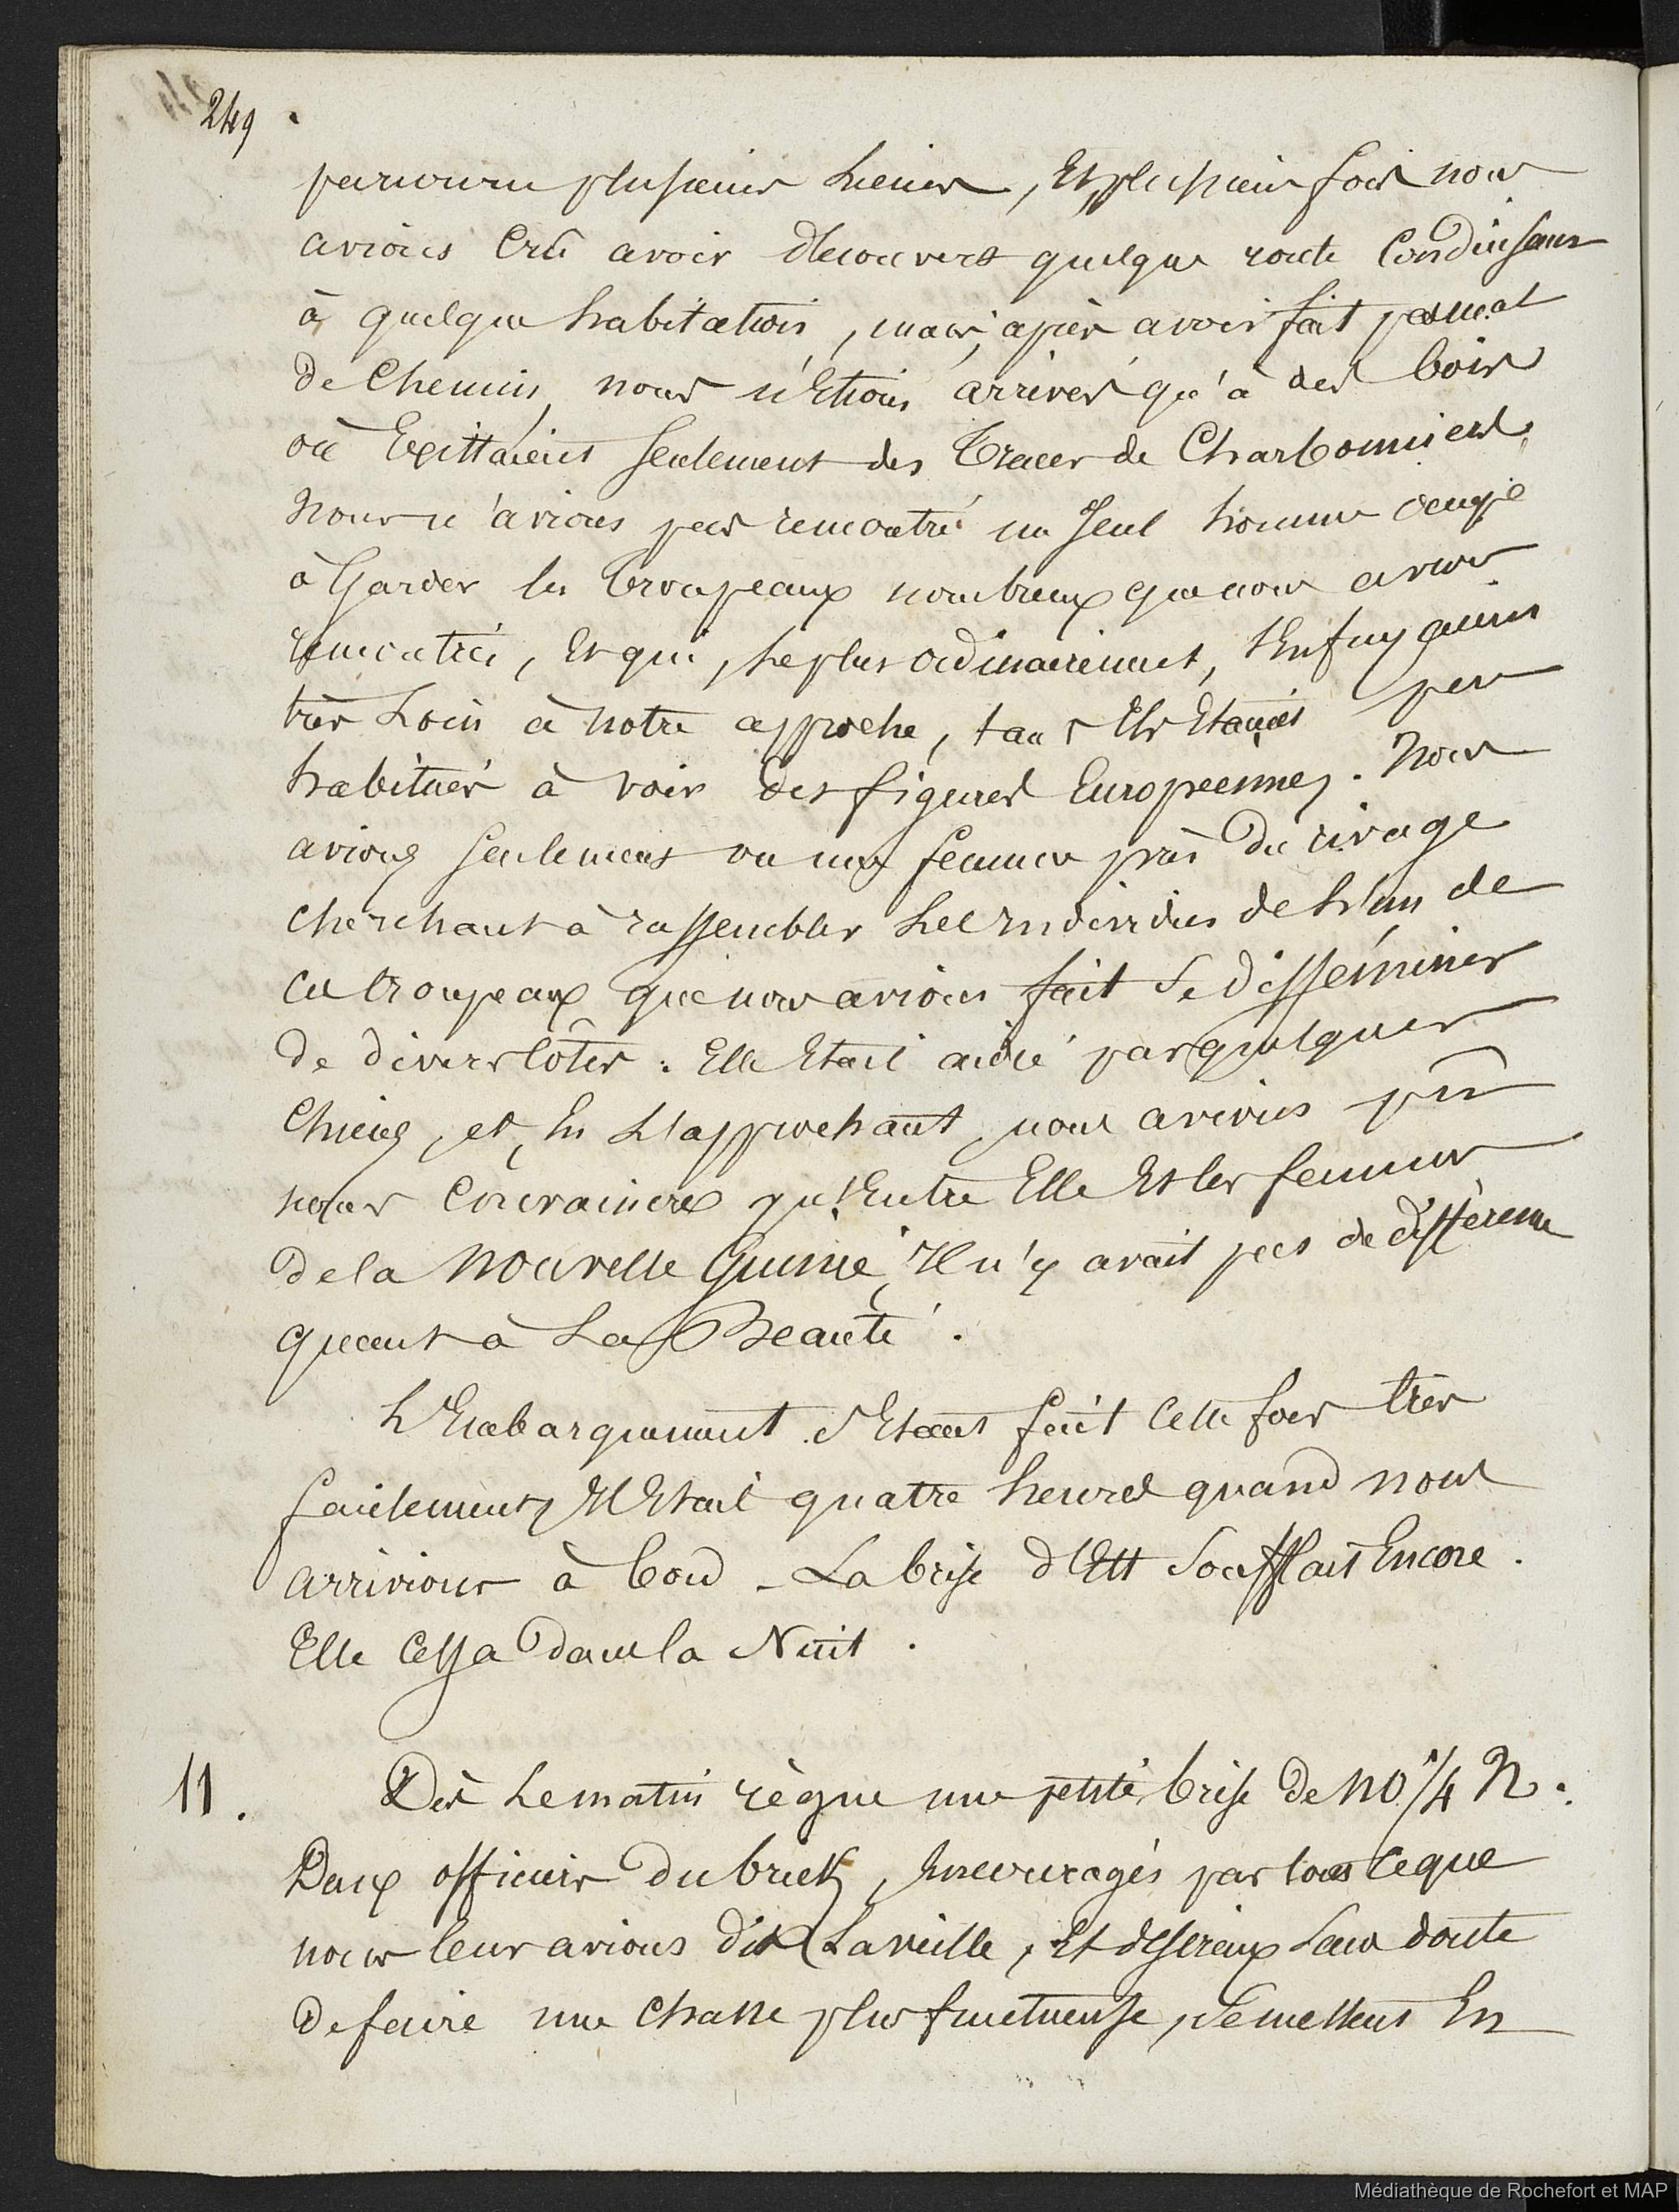 249
parcouru plusieurs lieues, Et plusieurs fois nous
avions Crû avoir découvert quelque route Conduisant
à quelque habitation, mais, après avoir fait pas mal
de Chemin, nous n'étions arrivés qu'à des bois
où Existtaient seulement des Traces de Charbonniers.
Nous n'avions pas rencontré un seul homme occupé
à Garder les troupeaux nombreux que nous avions
rencontrés, Et qui, le plus ordinairement, s'Enfuyaient
très Loin à notre approche, tant Ils Etaient peu
habitués à voir des figures Européennes. Nous
avions seulement vu une femme près du rivage
Cherchant à rassembler les Individus de l'un de
ces troupeaux que nous avions fait se disséminer
de divers côtés. Elle Etait aidée par quelques
Chiens, et, En s'approchant, nous avions pû
nous Convaincre qu'Entre Elle Et les femmes
de la Nouvelle Guinée, Il n'y avait pas de différence
quant à La Beauté.
L'Embarquement s'Etant fait Cette fois très
facilement, Il Etait quatre heures quand nous
arrivions à bord - La brise d'Est soufflait Encore.
Elle Cessa dans la Nuit.
11. Dès Le matin règne une petite brise de NO 1/4 N.
Deux officiers du brick, Encouragés par tout ce que
nous leur avions dit La veille, Et désireux sans doute
de faire une Chasse plus fructueuse, se mettent En
Médiathèque de Rochefort et MAP